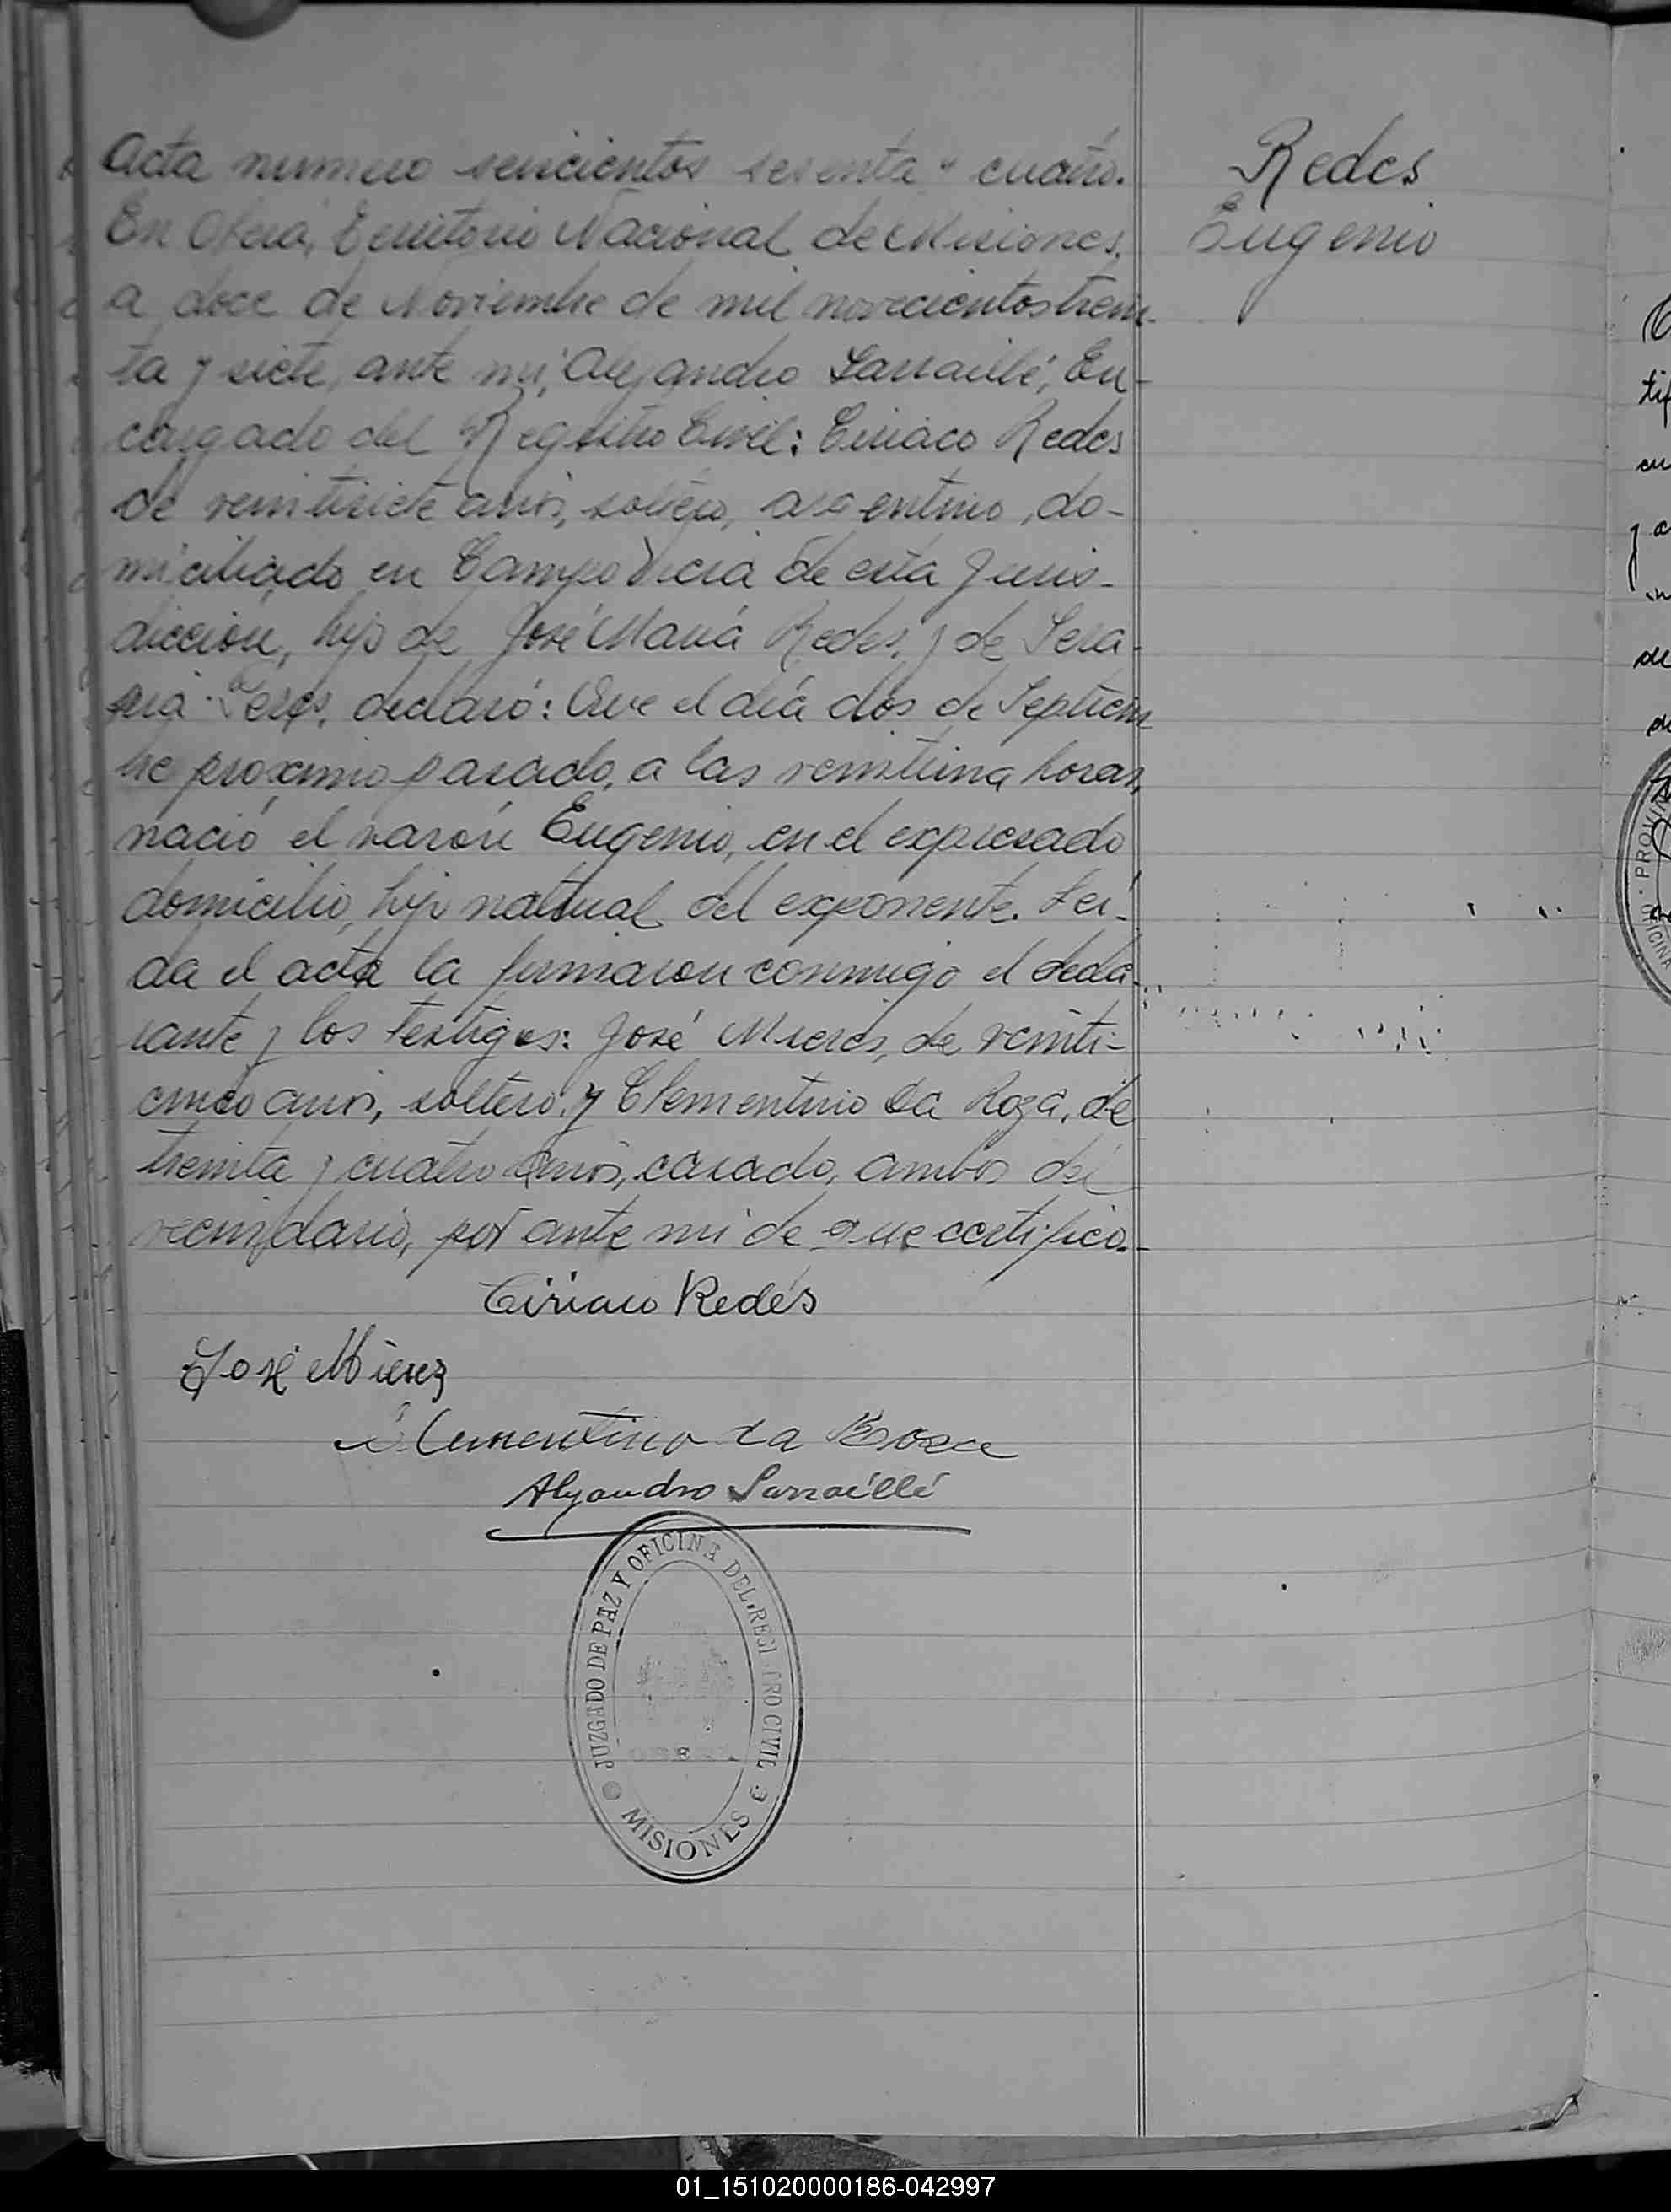 Acta numero seiscientos sesenta y cuatro.
En Oberá, Territorio Nacional de Misiones,
a doce de Noviembre de mil novecientos trein-
ta y siete, ante mi, Alejandro Sarraillé, En-
cargado del Registro Civil: Ciriaco Redes
de veintisiete años, soltero, argentino, do-
miciliado en Campo Viera de esta Juris-
dicción, hijo de José María Redes, y de
declaró: Que el día dos de Septiem
bre próximo pasado, a las veintiuna horas,
nació el varón Eugenio, en el expresado
domicilio, hijo natural del exponente. Leí-
da el acta la firmaron conmigo el decla-
rante y los testigos: José Mieres, de veinti-
cinco años, soltero y Clementino da Roza, de
treinta y cuatro años, casado, ambos del
vecindario, por ante mi de que certifico.-
Ciriaco Redés
José Mierez
Clementino da Rosa
Alejandro Sarraillé
JUZGADO DE PAZ Y OFICINA DEL REGISTRO CIVIL
OBERA
MISIONES
Redes
Eugenio
01_151020000186-042997